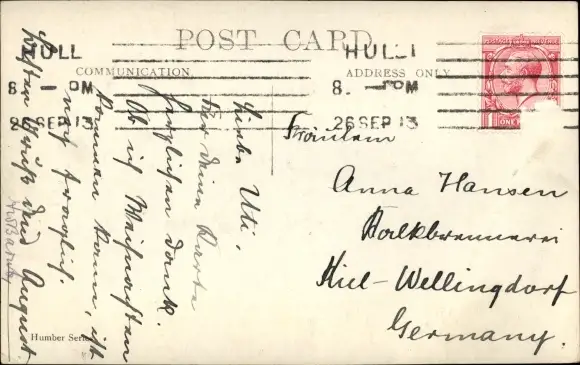 POST CARD
COMMUNICATION
ADDRESS ONLY
HULL
8. — PM
26 SEP 13
HULL
8. — PM
26 SEP 13
POSTAGE REVENUE
ONE
Liebe Uti,
Für deine Karte
herzlichen Dank.
Ob ich Weihnachten
kommen kann, ist
noch fraglich.
Besten Gruß dein August
Fräulein
Anna Hansen
Kalkbrennerei
Kiel-Wellingdorf
Germany.
Humber Series